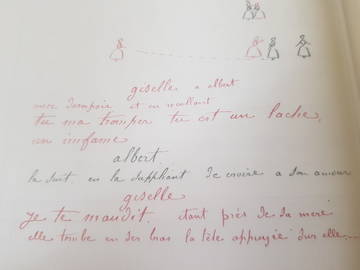 giselle a albert
mere d'empoie et en recullant
tu ma tromper tu est un lache,
un imfame
albert
la suit en la suppliant de croire a son amour
giselle
je te maudit étant près de sa meré
elle tombe en ses bras la tête appuyée sur elle